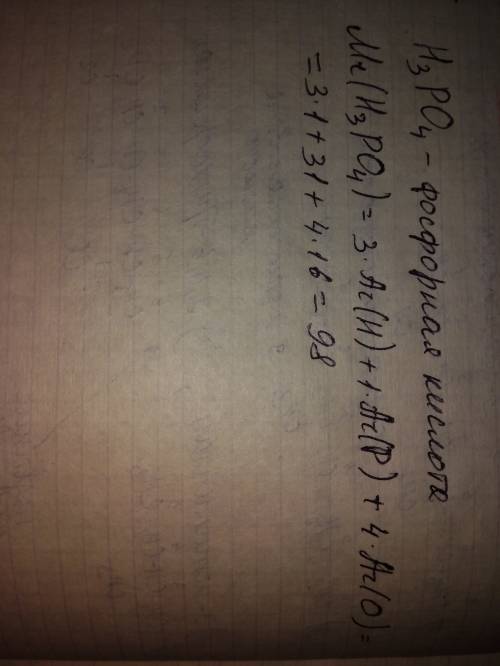 H₃PO₄ - фосфорная кислота
Mr(H₃PO₄) = 3·Ar(H) + 1·Ar(P) + 4·Ar(O) =
= 3·1 + 31 + 4·16 = 98